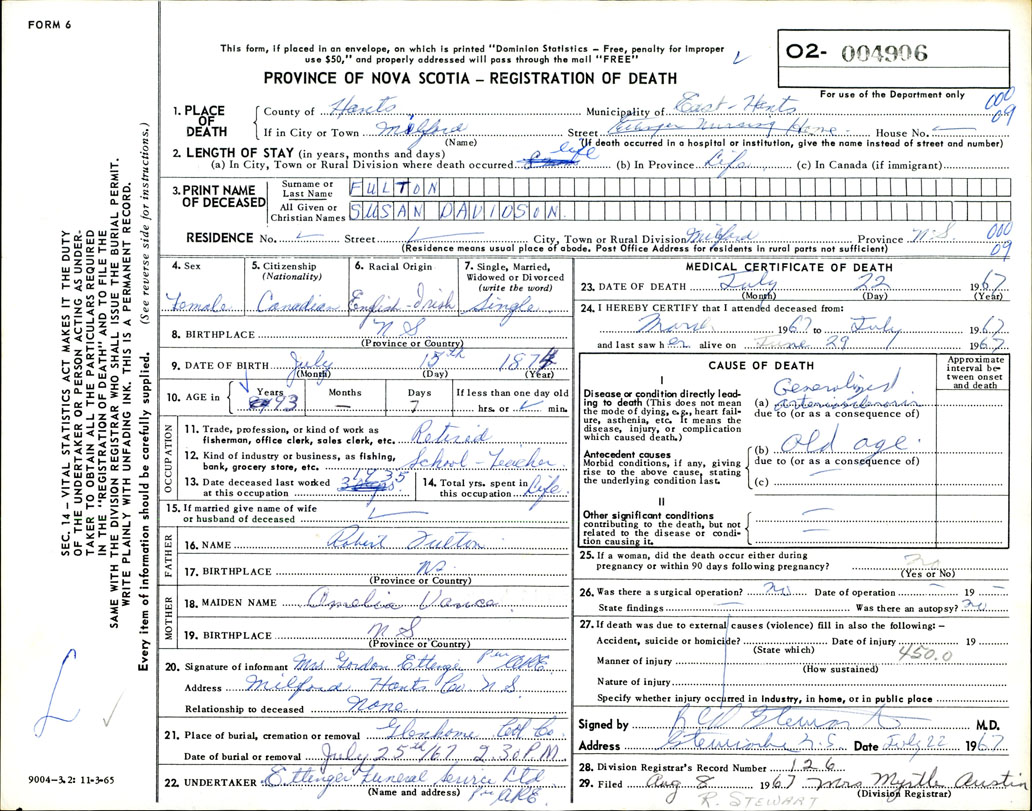 FORM 6
This form, if placed in an envelope, on which is printed "Dominion Statistics – Free, penalty for improper
use $50," and properly addressed will pass through the mail "FREE"
PROVINCE OF NOVA SCOTIA – REGISTRATION OF DEATH
02- 004906
For use of the Department only
000
09
1. PLACE OF DEATH
County of Hants Municipality of East-Hants
If in City or Town Milford Street Ettinger Nursing Home House No.
(Name) (If death occurred in a hospital or institution, give the name instead of street and number)
2. LENGTH OF STAY (in years, months and days)
(a) In City, Town or Rural Division where death occurred life (b) In Province Life (c) In Canada (if immigrant)
3. PRINT NAME OF DECEASED
Surname or Last Name FULTON
All Given or Christian Names SUSAN DAVIDSON
RESIDENCE No. Street City, Town or Rural Division Milford Province N.S.
(Residence means usual place of abode. Post Office Address for residents in rural parts not sufficient)
000
09
SEC. 14 – VITAL STATISTICS ACT MAKES IT THE DUTY
OF THE UNDERTAKER OR PERSON ACTING AS UNDER-
TAKER TO OBTAIN ALL THE PARTICULARS REQUIRED
IN THE "REGISTRATION OF DEATH" AND TO FILE THE
SAME WITH THE DIVISION REGISTRAR WHO SHALL ISSUE THE BURIAL PERMIT.
WRITE PLAINLY WITH UNFADING INK. THIS IS A PERMANENT RECORD.
Every item of information should be carefully supplied. (See reverse side for instructions.)
4. Sex Female
5. Citizenship (Nationality) Canadian
6. Racial Origin English-Irish
7. Single, Married, Widowed or Divorced (write the word) Single
8. BIRTHPLACE N S
(Province or Country)
9. DATE OF BIRTH July 15th 1874
(Month) (Day) (Year)
10. AGE in Years 93 Months – Days 7 If less than one day old hrs. or min.
OCCUPATION
11. Trade, profession, or kind of work as fisherman, office clerk, sales clerk, etc. Retired
12. Kind of industry or business, as fishing, bank, grocery store, etc. School-Teacher
13. Date deceased last worked at this occupation 1935
14. Total yrs. spent in this occupation Life
15. If married give name of wife or husband of deceased
FATHER
16. NAME Robert Fulton
17. BIRTHPLACE N S
(Province or Country)
MOTHER
18. MAIDEN NAME Amelia Vance
19. BIRTHPLACE N S
(Province or Country)
20. Signature of informant Mrs. Gordon Ettinger per ARE
Address Milford Hants Co. N.S.
Relationship to deceased None
21. Place of burial, cremation or removal Glenholme Col Co.
Date of burial or removal July 25th/67 2.30 P.M.
22. UNDERTAKER Ettinger Funeral Service Ltd
(Name and address) Per ARE.
9004-3.2: 11-3-65
MEDICAL CERTIFICATE OF DEATH
23. DATE OF DEATH July 22 1967
(Month) (Day) (Year)
24. I HEREBY CERTIFY that I attended deceased from:
March 1967 to July 1967
and last saw her alive on June 29 1967
CAUSE OF DEATH
Approximate interval between onset and death
I
Disease or condition directly leading to death (This does not mean the mode of dying, e.g., heart failure, asthenia, etc. It means the disease, injury, or complication which caused death.)
(a) Generalized arteriosclerosis
due to (or as a consequence of)
Antecedent causes
Morbid conditions, if any, giving rise to the above cause, stating the underlying condition last.
(b) Old age
due to (or as a consequence of)
(c) –
II
Other significant conditions contributing to the death, but not related to the disease or condition causing it.
25. If a woman, did the death occur either during pregnancy or within 90 days following pregnancy? No
(Yes or No)
26. Was there a surgical operation? No Date of operation – 19 –
State findings – Was there an autopsy? No
27. If death was due to external causes (violence) fill in also the following: –
Accident, suicide or homicide? Date of injury 19
(State which) 450.0
Manner of injury
(How sustained)
Nature of injury
Specify whether injury occurred in Industry, in home, or in public place
Signed by Stewart M.D.
Address Stewiacke N.S. Date July 22 1967
28. Division Registrar's Record Number 126
29. Filed Aug 8 1967 Mrs Myrtle Austin
(Division Registrar)
R. STEWART